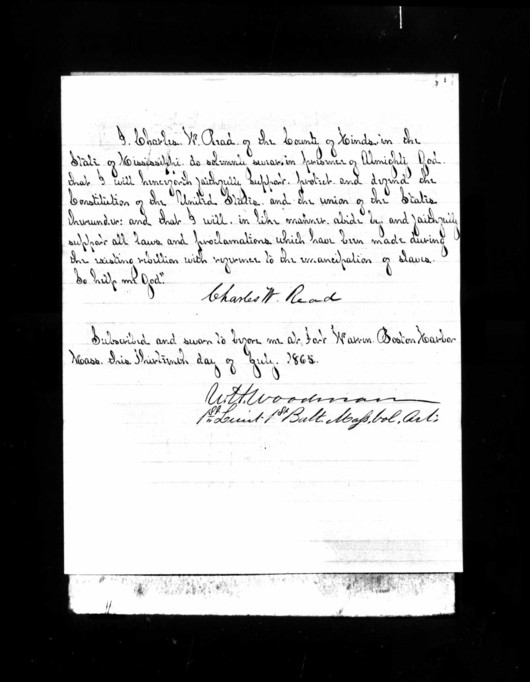 I. Charles. W. Read of the County of Hinds. in the
State of Mississippi. do solemnly swear. in presence of Almighty God.
that I will henceforth faithfully support. protect and defend the
Constitution of the United States. and the union of the States
thereunder: and that I will. in like manner. abide by. and faithfully
support all laws and proclamations which have been made during
the existing rebellion with reference to the emancipation of slaves.
So help me God."
Charles W. Read
Subscribed and sworn to before me at. Fort Warren. Boston Harbor
Mass. this Thirteenth day of July. 1865.
W.H. Woodman
1st Lieut. 1st Batt. Mass. Vol. Art.